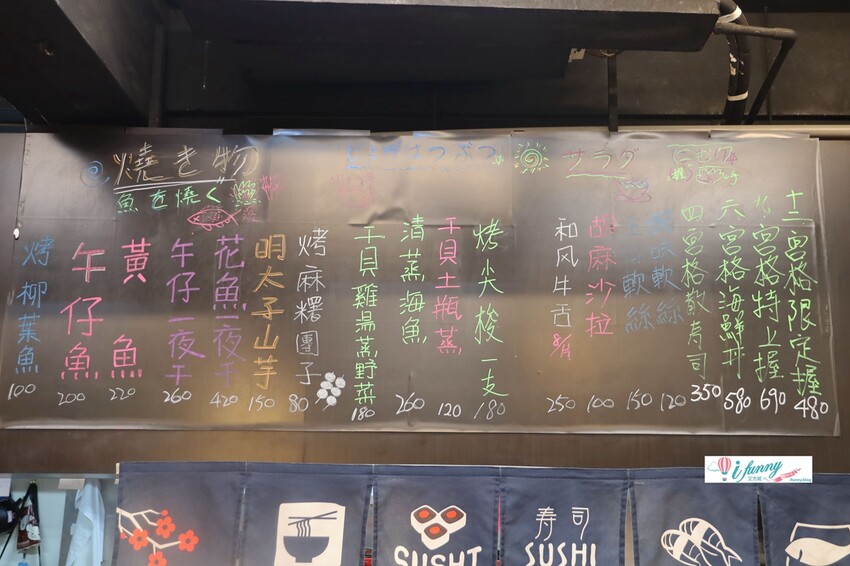 燒き物
魚を燒く
烤柳葉魚
100
午仔魚
200
黃魚
220
午仔一夜干
260
花魚一夜干
420
明太子山芋
150
烤麻糬團子
80
干貝雞湯蒸野菜
180
清蒸海魚
260
干貝土瓶蒸
120
烤尖梭一支
180
サラダ
和风牛舌
250
麻沙拉
100
軟絲
150
軟絲
120
四宮格散壽司
350
六宮格海鮮丼
580
宮格特上握
690
十二宮格限定握
480
i funny
SUSHI
寿司
SUSHI